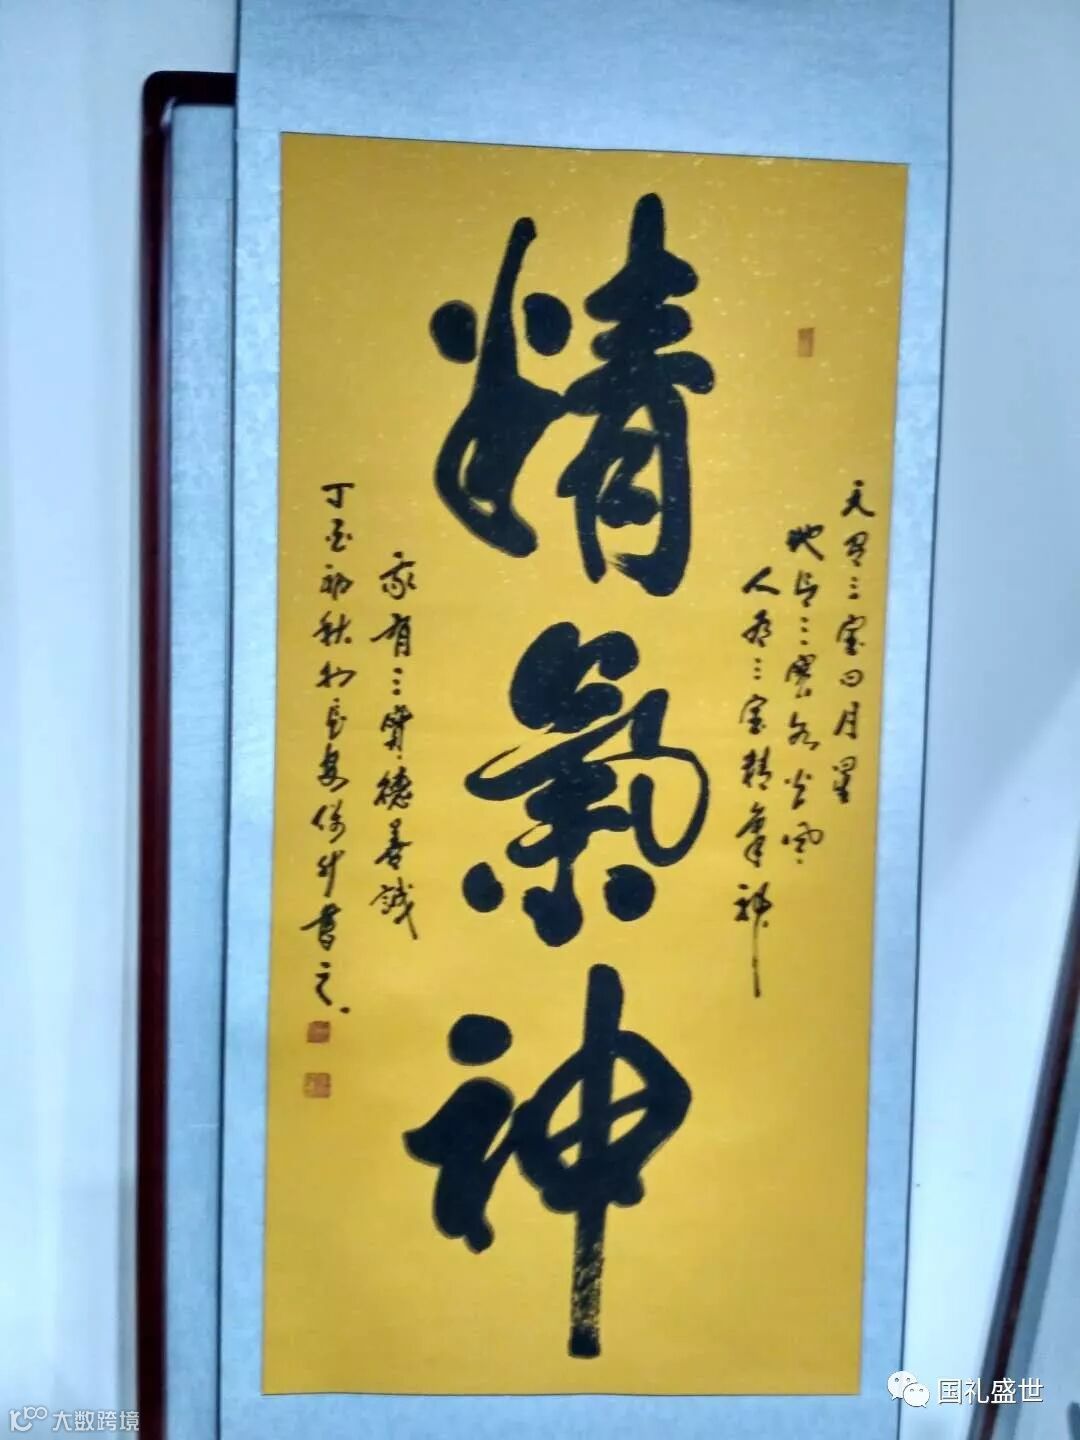 天有三宝日月星
地有三寶水火风
人有三宝精氣神
精氣神
家有三寶德善誠
丁酉初秋於長安書之
国礼盛世
大数跨境